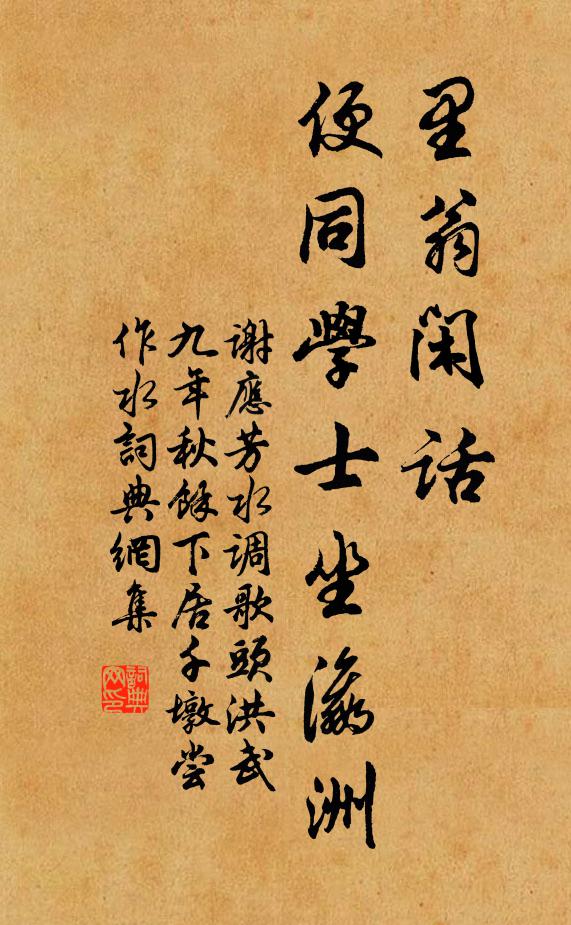 里翁闲話
便同學士坐瀛洲
謝應芳水调歌頭洪武
九年秋餘下居千墩尝
作水詞典網集
詞典网印